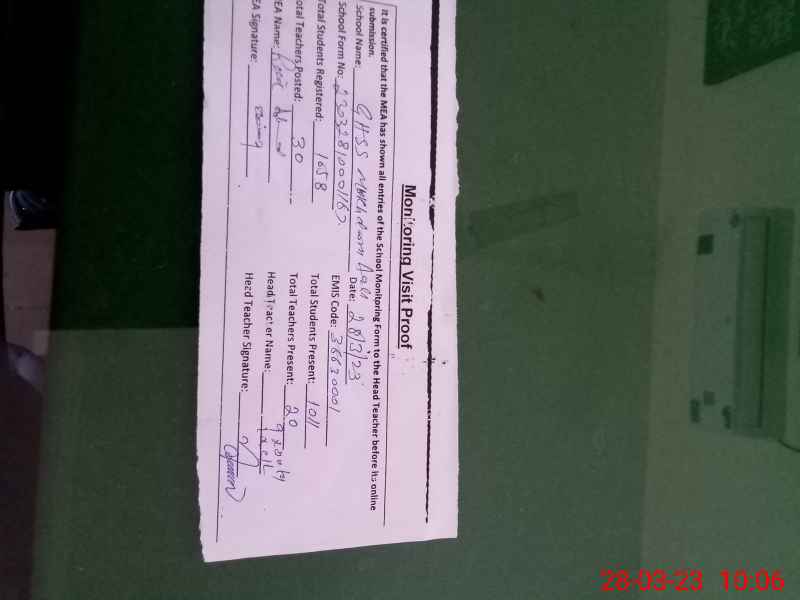 Monitoring Visit Proof
It is certified that the MEA has shown all entries of the School Monitoring Form to the Head Teacher before its online
submission.
School Name: GHSS Date: 28/3/23
School Form No: 23032810001167 EMIS Code: 36620001
Total Students Registered: 1658 Total Students Present: 1011
Total Teachers Posted: 30 Total Teachers Present: 20
MEA Name: Head Teacher Name:
MEA Signature: Head Teacher Signature:
28-03-23 10:06